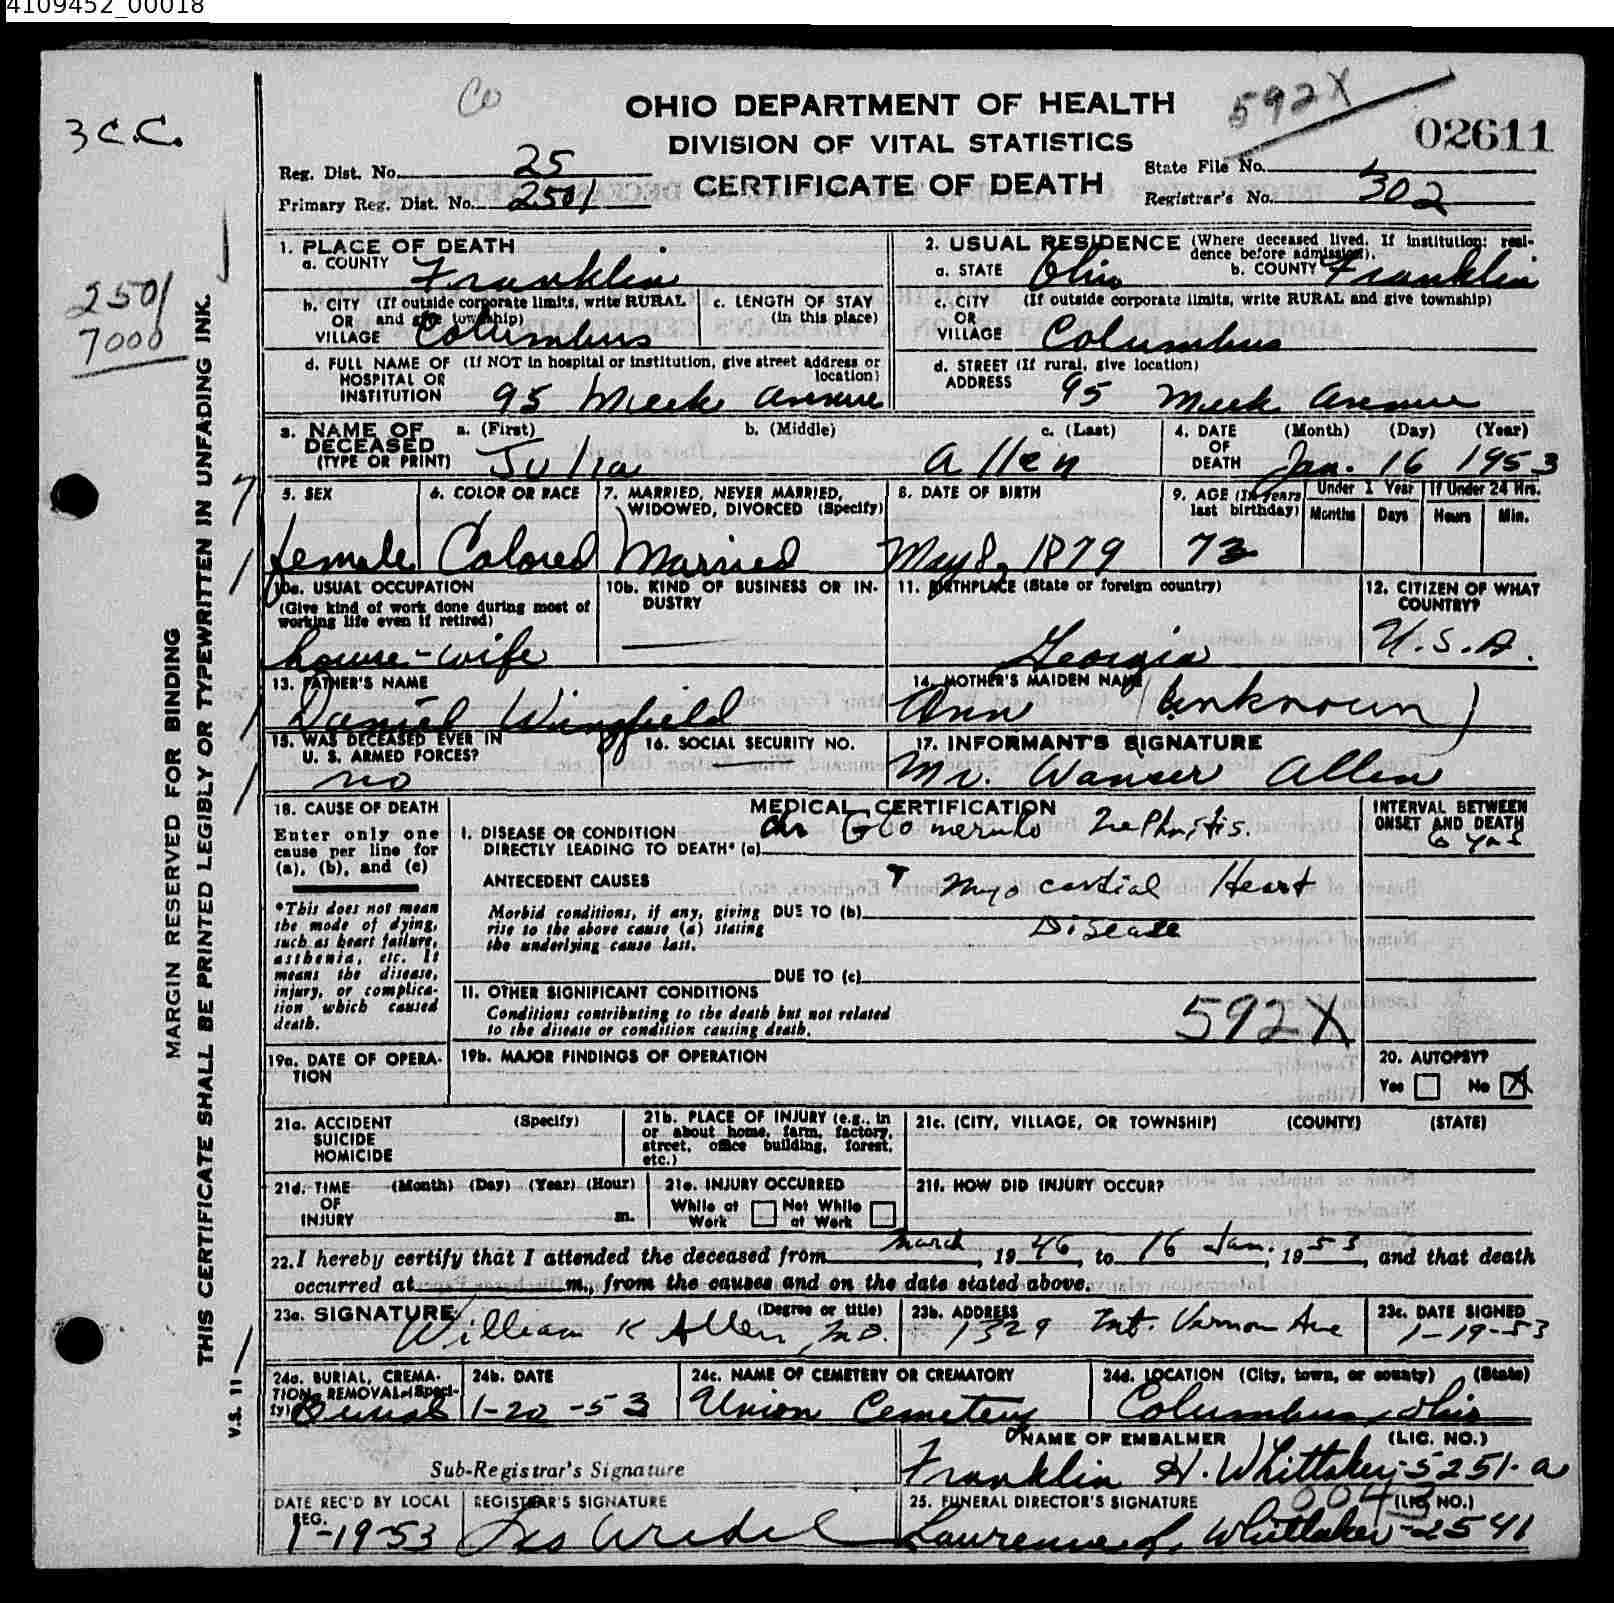 4109452_00018
Co
OHIO DEPARTMENT OF HEALTH
592X
3 C.C.
DIVISION OF VITAL STATISTICS
02611
Reg. Dist. No. 25
CERTIFICATE OF DEATH
State File No.
Primary Reg. Dist. No. 2501
Registrar's No. 302
2501
7000
MARGIN RESERVED FOR BINDING
THIS CERTIFICATE SHALL BE PRINTED LEGIBLY OR TYPEWRITTEN IN UNFADING INK.
V.S. 11
1. PLACE OF DEATH
a. COUNTY Franklin
2. USUAL RESIDENCE (Where deceased lived. If institution: residence before admission).
a. STATE Ohio b. COUNTY Franklin
b. CITY (If outside corporate limits, write RURAL
OR and give township)
VILLAGE Columbus
c. LENGTH OF STAY
(in this place)
c. CITY (If outside corporate limits, write RURAL and give township)
OR
VILLAGE Columbus
d. FULL NAME OF (If NOT in hospital or institution, give street address or
HOSPITAL OR location)
INSTITUTION 95 Meek Avenue
d. STREET (If rural, give location)
ADDRESS 95 Meek Avenue
3. NAME OF DECEASED (TYPE OR PRINT)
a. (First) b. (Middle) c. (Last)
Julia Allen
4. DATE OF DEATH (Month) (Day) (Year)
Jan. 16 1953
5. SEX
female
6. COLOR OR RACE
Colored
7. MARRIED, NEVER MARRIED,
WIDOWED, DIVORCED (Specify)
Married
8. DATE OF BIRTH
May 8, 1879
9. AGE (In years
last birthday)
73
Under 1 Year
Months Days
If Under 24 Hrs.
Hours Min.
10a. USUAL OCCUPATION
(Give kind of work done during most of
working life even if retired)
house-wife
10b. KIND OF BUSINESS OR INDUSTRY
11. BIRTHPLACE (State or foreign country)
Georgia
12. CITIZEN OF WHAT
COUNTRY?
U.S.A.
13. FATHER'S NAME
Daniel Wingfield
14. MOTHER'S MAIDEN NAME
Ann (unknown)
15. WAS DECEASED EVER IN
U. S. ARMED FORCES?
no
16. SOCIAL SECURITY NO.
17. INFORMANT'S SIGNATURE
Mr. Wanser Allen
18. CAUSE OF DEATH
Enter only one
cause per line for
(a), (b), and (c)
*This does not mean
the mode of dying,
such as heart failure,
asthenia, etc. It
means the disease,
injury, or complica-
tion which caused
death.
MEDICAL CERTIFICATION
I. DISEASE OR CONDITION
DIRECTLY LEADING TO DEATH* (a) Chr Glomerulo Nephritis.
INTERVAL BETWEEN
ONSET AND DEATH
6 yrs
ANTECEDENT CAUSES
Morbid conditions, if any, giving
rise to the above cause (a) stating
the underlying cause last.
DUE TO (b) Myocardial Heart
Disease
DUE TO (c)
II. OTHER SIGNIFICANT CONDITIONS
Conditions contributing to the death but not related
to the disease or condition causing death.
592X
19a. DATE OF OPERA-
TION
19b. MAJOR FINDINGS OF OPERATION
20. AUTOPSY?
Yes No X
21a. ACCIDENT (Specify)
SUICIDE
HOMICIDE
21b. PLACE OF INJURY (e.g., in
or about home, farm, factory,
street, office building, forest,
etc.)
21c. (CITY, VILLAGE, OR TOWNSHIP) (COUNTY) (STATE)
21d. TIME (Month) (Day) (Year) (Hour)
OF
INJURY m.
21e. INJURY OCCURRED
While at Work Not While at Work
21f. HOW DID INJURY OCCUR?
22. I hereby certify that I attended the deceased from March, 1946, to 16 Jan., 1953, and that death
occurred at m., from the causes and on the date stated above.
23a. SIGNATURE (Degree or title)
William K Allen, M.D.
23b. ADDRESS
1329 Mt. Vernon Ave
23c. DATE SIGNED
1-19-53
24a. BURIAL, CREMA-
TION, REMOVAL (Speci-
fy) Burial
24b. DATE
1-20-53
24c. NAME OF CEMETERY OR CREMATORY
Union Cemetery
24d. LOCATION (City, town, or county) (State)
Columbus, Ohio
Sub-Registrar's Signature
NAME OF EMBALMER (LIC. NO.)
Franklin H. Whittaker-5251-a
DATE REC'D BY LOCAL
REG.
1-19-53
REGISTRAR'S SIGNATURE
25. FUNERAL DIRECTOR'S SIGNATURE (LIC. NO.)
Lawrence L. Whittaker-2541